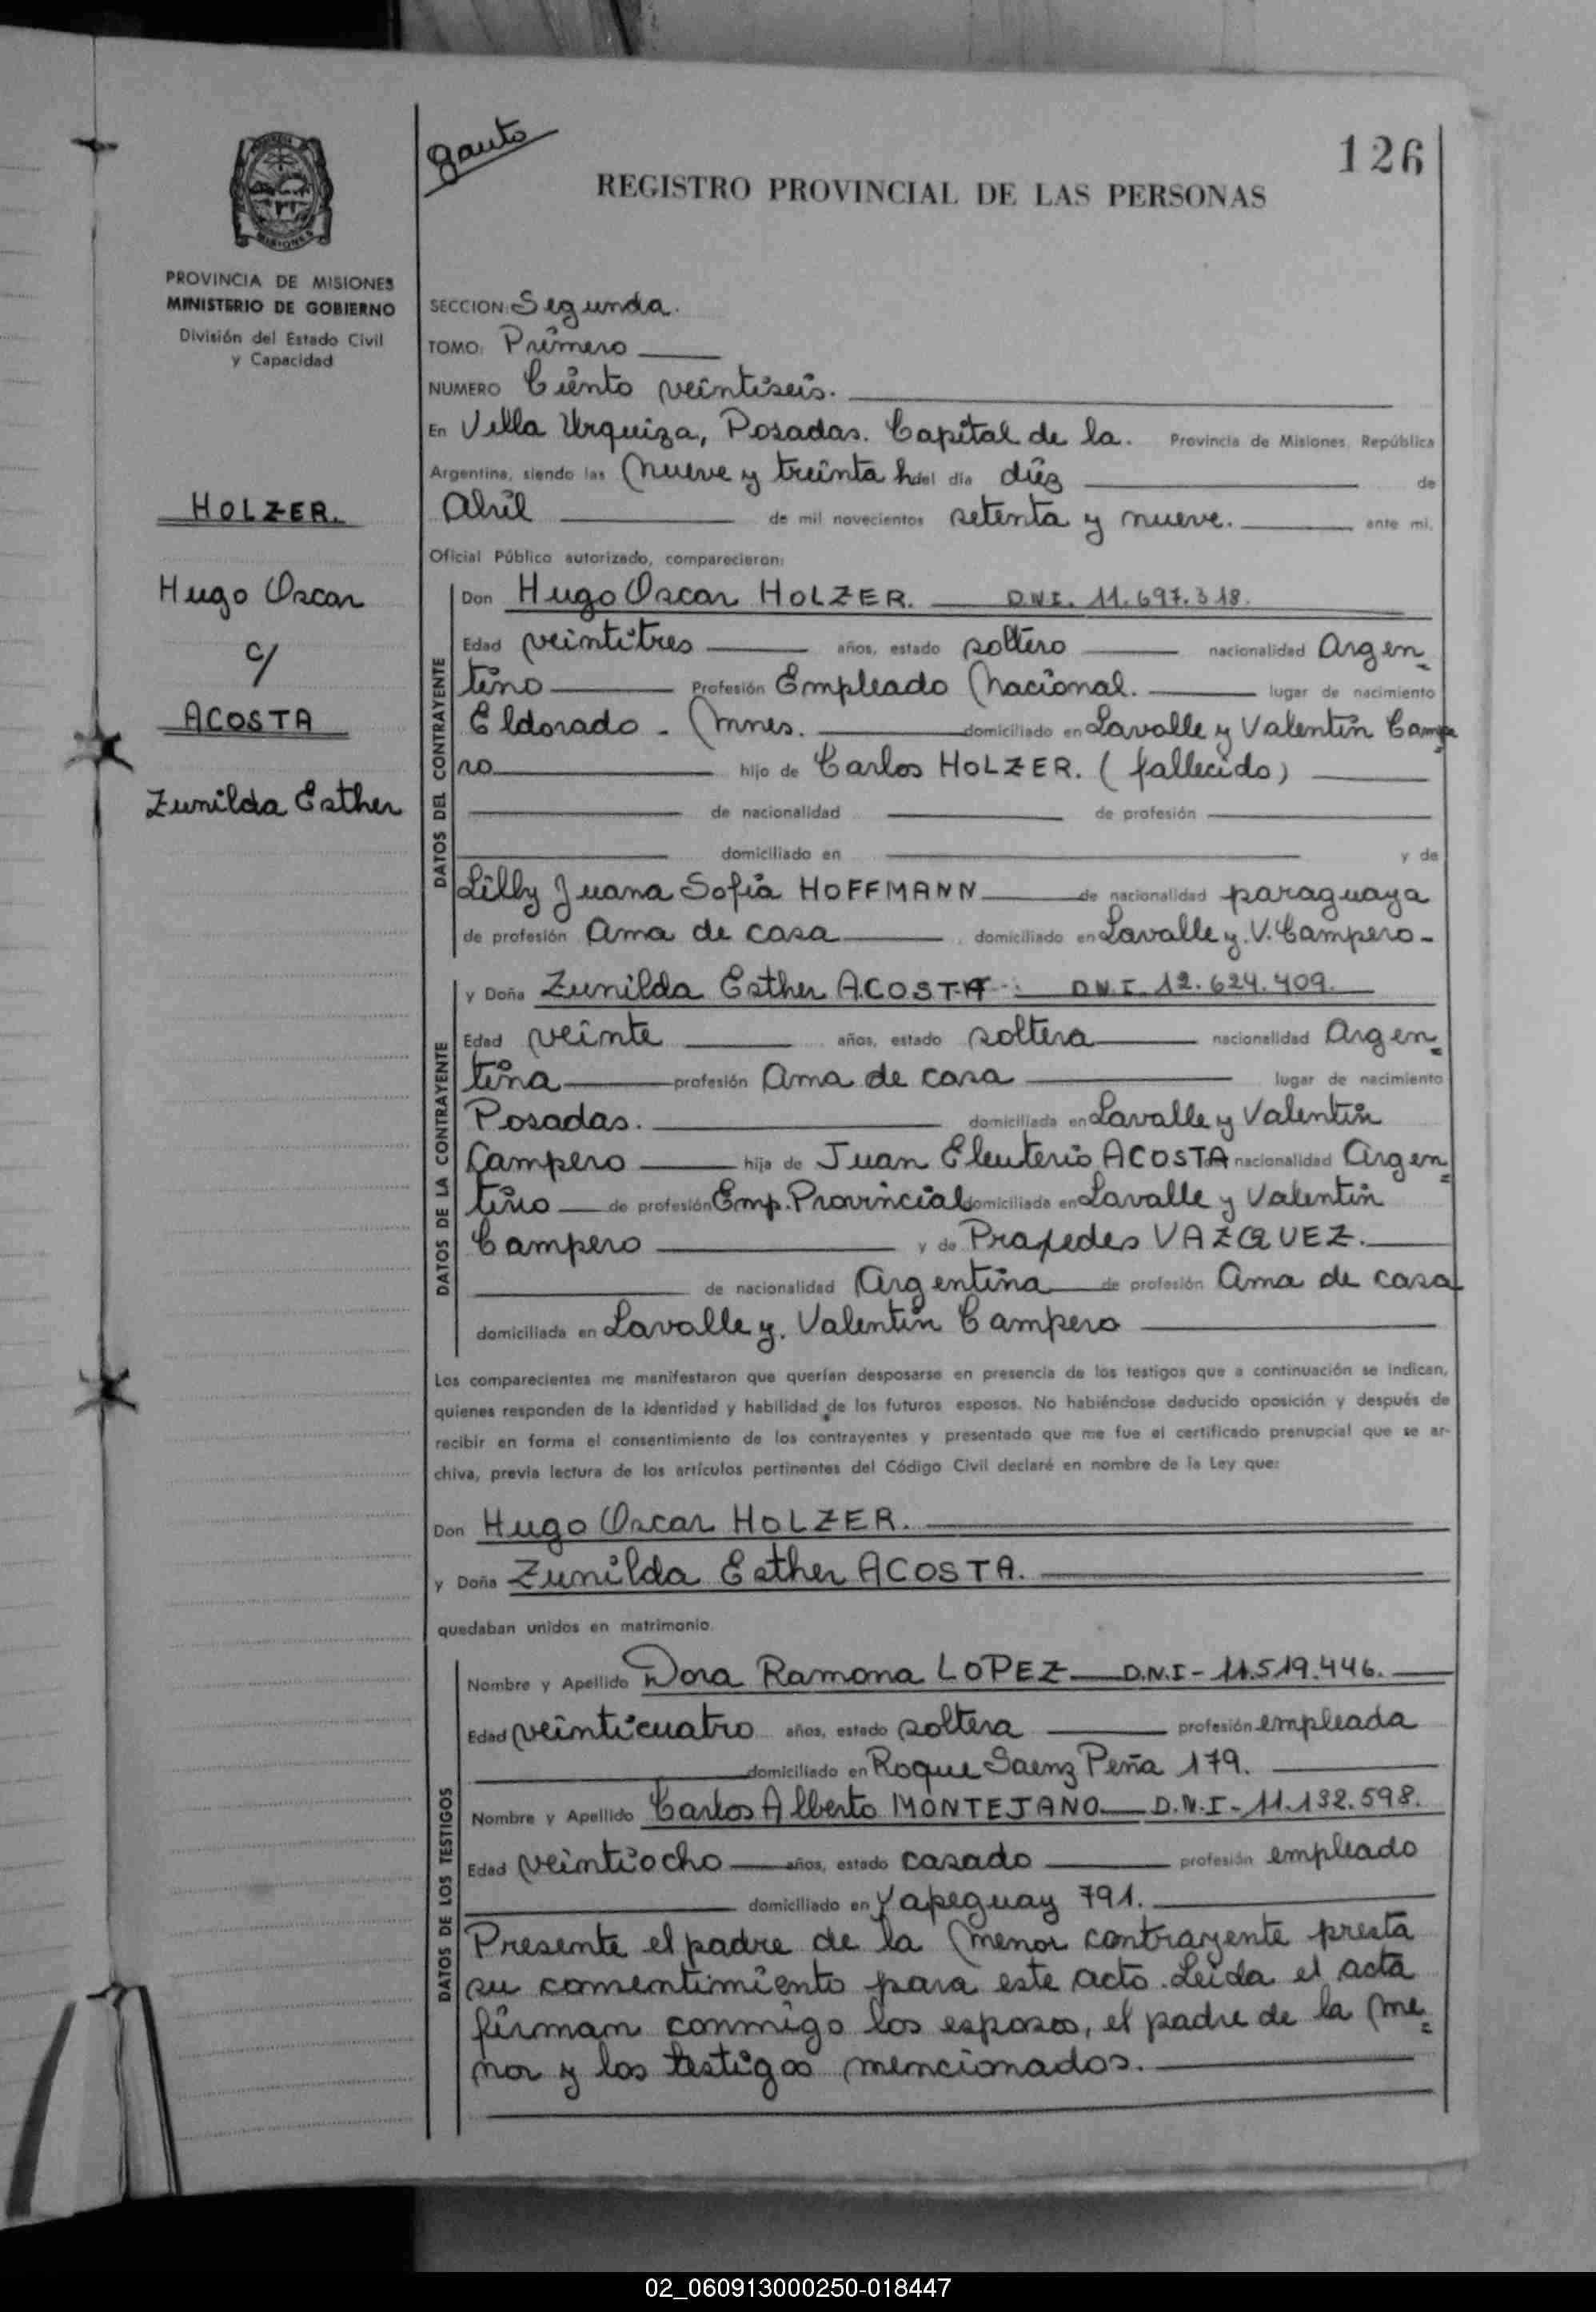 126
gauto
REGISTRO PROVINCIAL DE LAS PERSONAS
MISIONES
PROVINCIA DE MISIONES
MINISTERIO DE GOBIERNO
División del Estado Civil
y Capacidad
HOLZER.
Hugo Oscar
c/
ACOSTA
Zunilda Esther
SECCION: Segunda.
TOMO: Primero
NUMERO Ciento veintiseis.
En Villa Urquiza, Posadas. Capital de la. Provincia de Misiones, República
Argentina, siendo las nueve y treinta h. del día diez de
Abril de mil novecientos setenta y nueve. ante mi,
Oficial Público autorizado, comparecieron:
DATOS DEL CONTRAYENTE
Don Hugo Oscar HOLZER. D.N.I. 11.697.318.
Edad veintitres años, estado soltero nacionalidad Argen-
tino Profesión Empleado Nacional. lugar de nacimiento
Eldorado - Mnes. domiciliado en Lavalle y Valentín Campe
ro hijo de Carlos HOLZER. (fallecido)
de nacionalidad de profesión
domiciliado en y de
Lilly Juana Sofía HOFFMANN de nacionalidad paraguaya
de profesión Ama de casa domiciliado en Lavalle y. V. Campero-
DATOS DE LA CONTRAYENTE
y Doña Zunilda Esther ACOSTA D.N.I. 12.624.409.
Edad veinte años, estado soltera nacionalidad Argen-
tina profesión Ama de casa lugar de nacimiento
Posadas. domiciliada en Lavalle y Valentín
Campero hija de Juan Eleuterio ACOSTA nacionalidad Argen-
tino de profesión Emp. Provincial domiciliada en Lavalle y Valentín
Campero y de Praxedes VAZQUEZ.
de nacionalidad Argentina de profesión Ama de casa
domiciliada en Lavalle y. Valentín Campero
Los comparecientes me manifestaron que querían desposarse en presencia de los testigos que a continuación se indican,
quienes responden de la identidad y habilidad de los futuros esposos. No habiéndose deducido oposición y después de
recibir en forma el consentimiento de los contrayentes y presentado que me fue el certificado prenupcial que se ar-
chiva, previa lectura de los artículos pertinentes del Código Civil declaré en nombre de la Ley que:
Don Hugo Oscar HOLZER.
y Doña Zunilda Esther ACOSTA.
quedaban unidos en matrimonio.
DATOS DE LOS TESTIGOS
Nombre y Apellido Dora Ramona LOPEZ D.N.I- 11.519.446.
Edad veinticuatro años, estado soltera profesión empleada
domiciliado en Roque Saenz Peña 179.
Nombre y Apellido Carlos Alberto MONTEJANO D.N.I- 11.132.598.
Edad veintiocho años, estado casado profesión empleado
domiciliado en Yapeguay 791.
Presente el padre de la menor contrayente presta
su consentimiento para este acto. Leida el acta
firman conmigo los esposos, el padre de la me-
nor y los testigos mencionados.
02_060913000250-018447